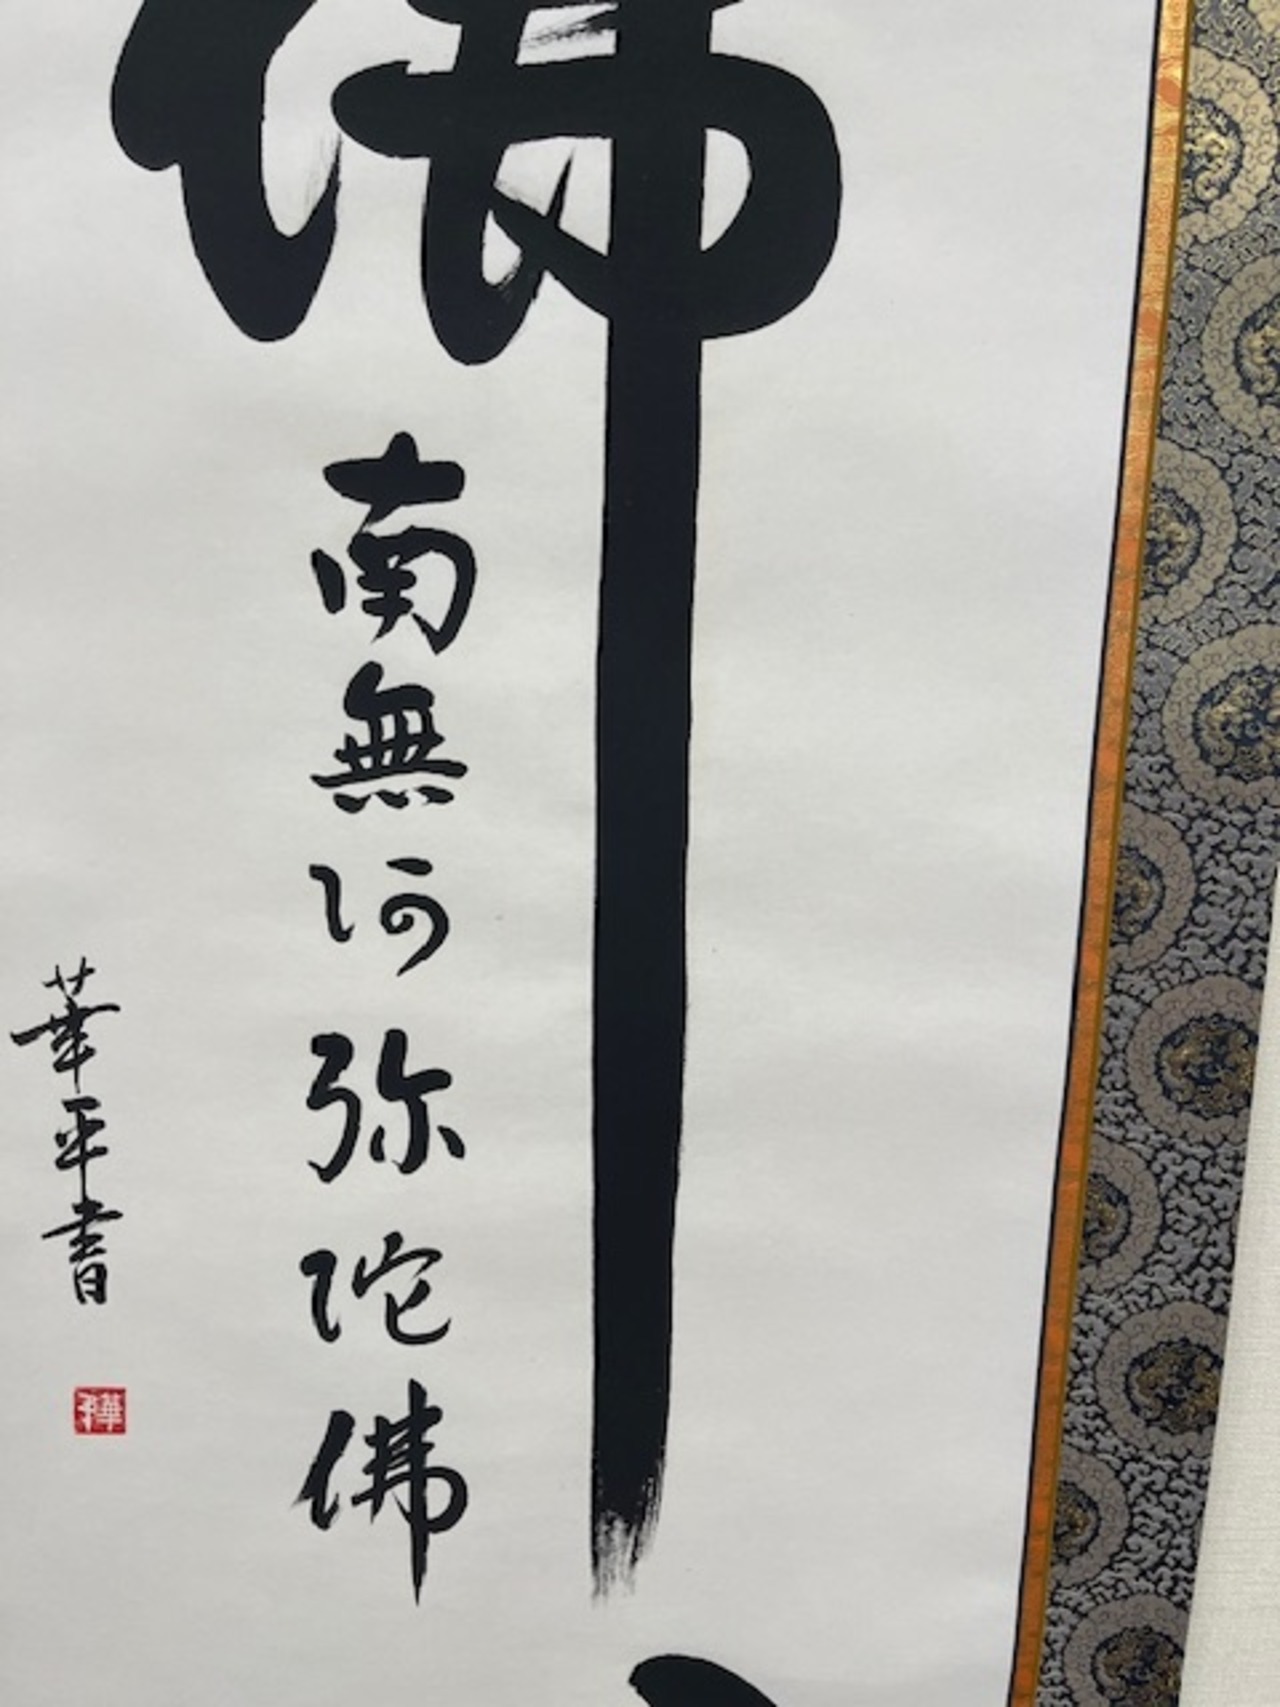 佛
南無阿弥陀佛
華平書
華平